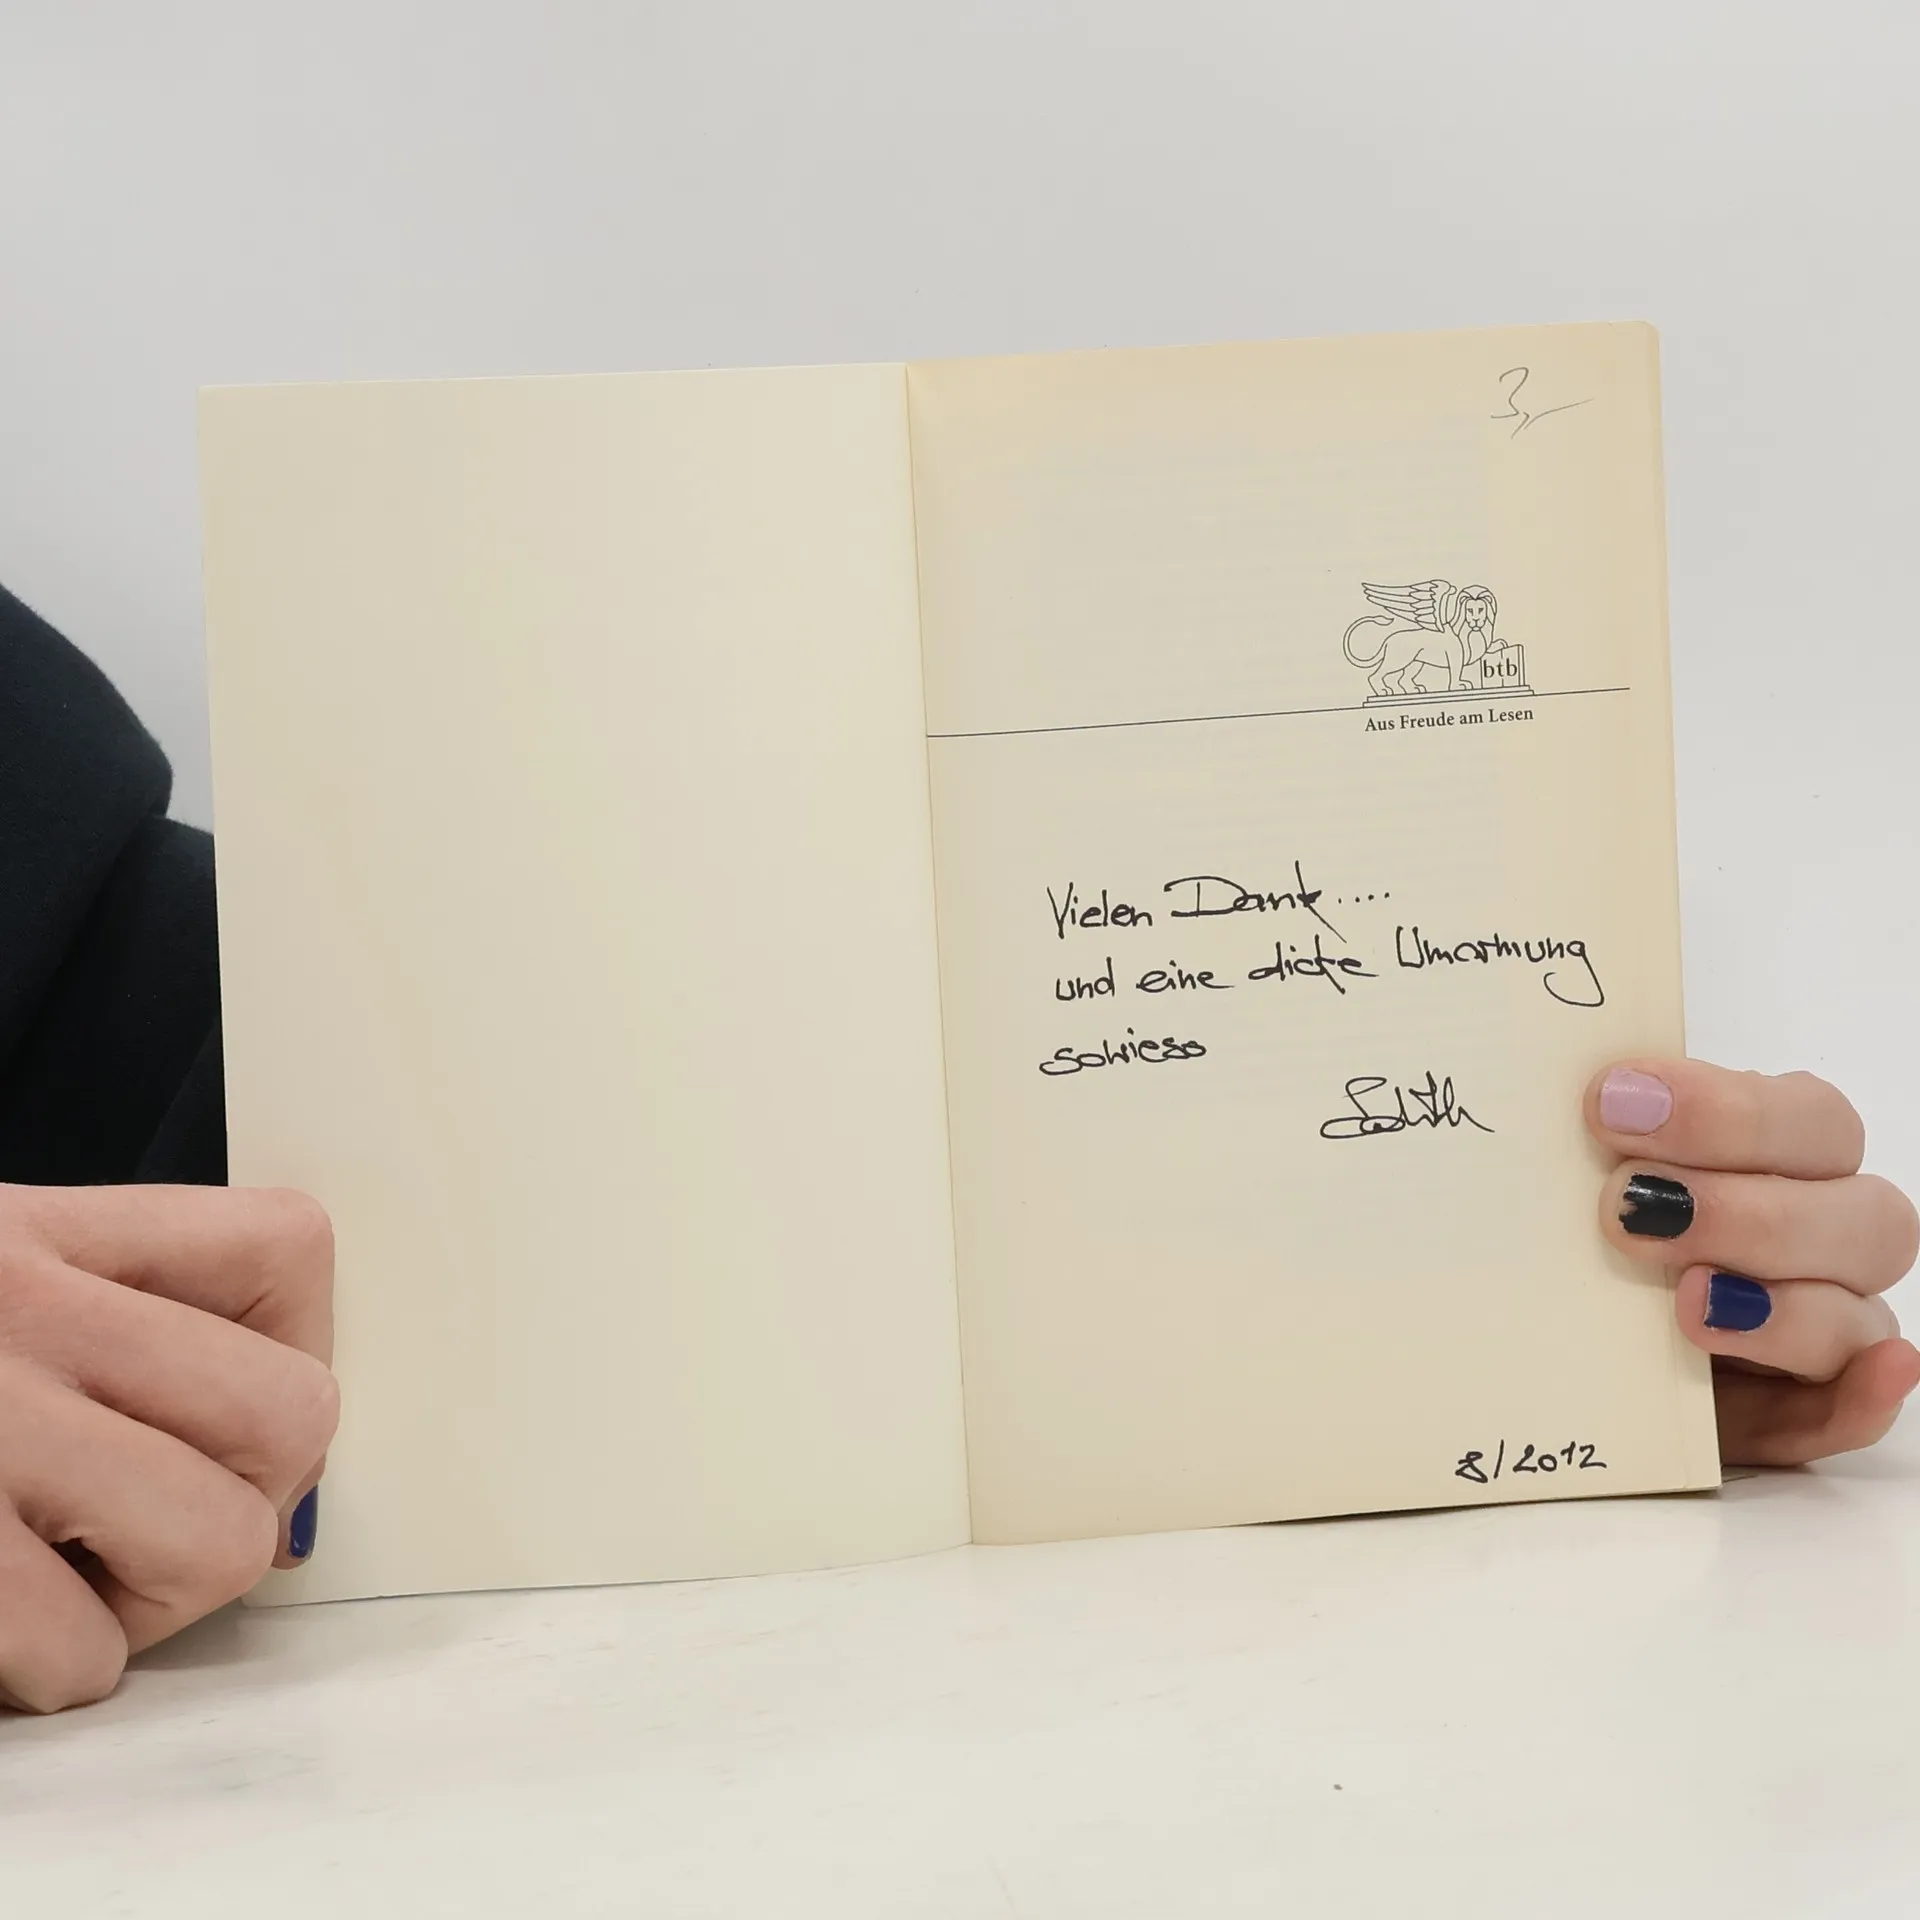 3,-
btb
Aus Freude am Lesen
Vielen Dank....
und eine dicke Umarmung
sowieso
Edith
8/2012